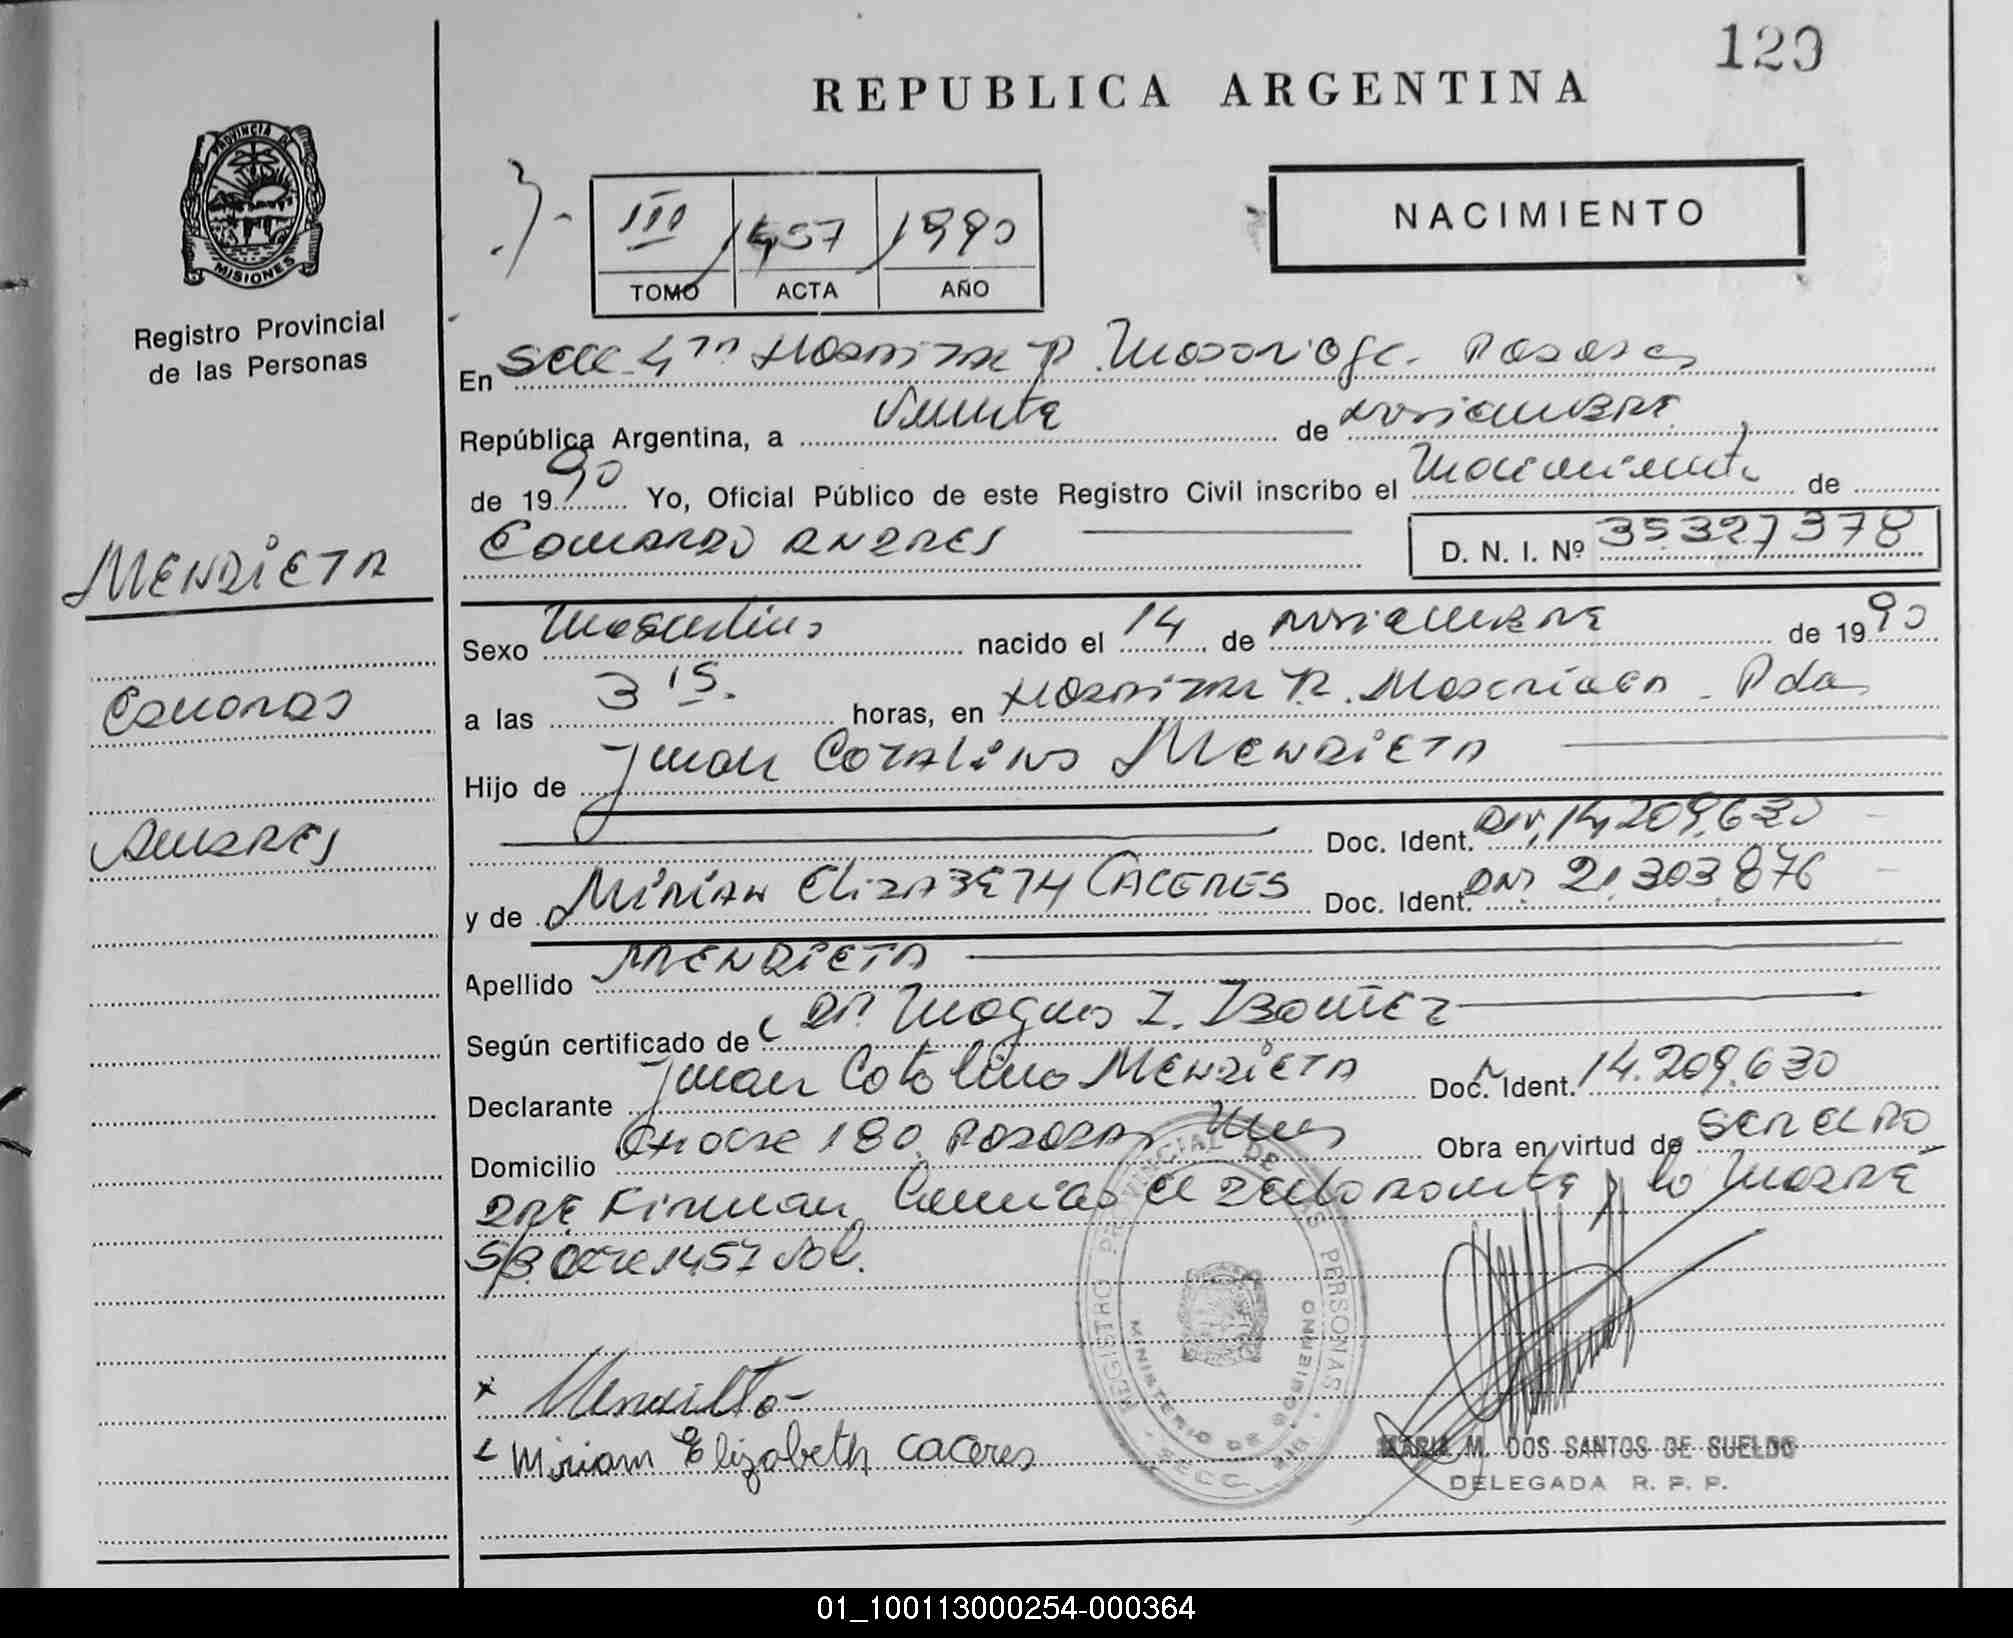 120
REPUBLICA ARGENTINA
PROVINCIA DE MISIONES
Registro Provincial
de las Personas
NACIMIENTO
III 1457 1990
TOMO ACTA AÑO
En Secc 4ta Hospital R. Madariaga. Posadas
República Argentina, a Veinte de noviembre
de 1990 Yo, Oficial Público de este Registro Civil inscribo el Nacimiento de
D. N. I. Nº 35327378
MENDIETA
Sexo Masculino nacido el 14 de noviembre de 1990
a las 3 15. horas, en Hospital R. Madariaga - Pdas
Hijo de Juan Catalino MENDIETA
Doc. Ident. DNI. 14.209.630
y de Mirian Elizabeth CACERES Doc. Ident. DNI 21.303.876
Apellido MENDIETA
Según certificado de Dr. Magno I. Ibañez
Declarante Juan Catalino MENDIETA Doc. Ident. 14.209.630
Domicilio 180 Posadas Mnes Obra en virtud de ser el PA
DRE Firman Conmigo el declarante y la madre
S/B Acta 1457 Vale.
REGISTRO PROVINCIAL DE LAS PERSONAS
MINISTERIO DE GOBIERNO
Miriam Elizabeth caceres
MARIA M. DOS SANTOS DE SUELDO
DELEGADA R. P. P.
01_100113000254-000364